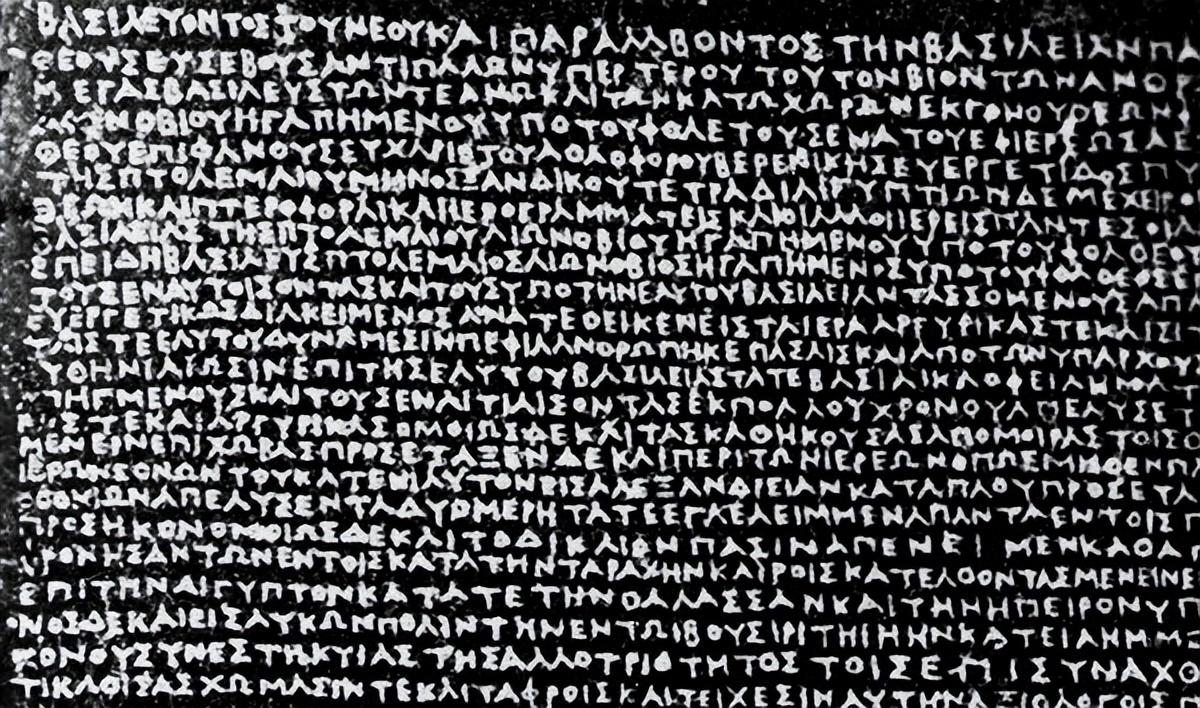 ΒΑΣΙΛΕΥΟΝΤΟΣΤΟΥΝΕΟΥΚΑΙΠΑΡΑΛΑΒΟΝΤΟΣΤΗΝΒΑΣΙΛΕΙΑΝΠΑ
ΘΕΟΥΣΕΥΣΕΒΟΥΣΑΝΤΙΠΑΛΩΝΥΠΕΡΤΕΡΟΥΤΟΥΤΟΝΒΙΟΝΤΩΝΑΝΘΡ
ΜΕΓΑΣΒΑΣΙΛΕΥΣΤΩΝΤΕΑΝΩΚΑΙΤΩΝΚΑΤΩΧΩΡΩΝΕΚΓΟΝΟΥΘΕΩΝ
ΑΙΩΝΟΒΙΟΥΗΓΑΠΗΜΕΝΟΥΥΠΟΤΟΥΦΘΑΕΤΟΥΣΕΝΑΤΟΥΕΦΙΕΡΕΩΣΑΕ
ΘΕΟΥΕΠΙΦΑΝΟΥΣΕΥΧΑΡΙΣΤΟΥΑΘΛΟΦΟΡΟΥΒΕΡΕΝΙΚΗΣΕΥΕΡΓΕΤΙΔΟΣΠΥ
ΤΗΣΠΤΟΛΕΜΑΙΟΥΜΗΝΟΣΞΑΝΔΙΚΟΥΤΕΤΡΑΔΙΑΙΓΥΠΤΙΩΝΔΕΜΕΧΕΙΡΟ
ΘΕΩΝΚΑΙΠΤΕΡΟΦΟΡΑΙΚΑΙΙΕΡΟΓΡΑΜΜΑΤΕΙΣΚΑΙΟΙΑΛΛΟΙΙΕΡΕΙΣΠΑΝΤΕΣΟΙΑ
ΒΑΣΙΛΕΙΑΣΤΗΣΠΤΟΛΕΜΑΙΟΥΑΙΩΝΟΒΙΟΥΗΓΑΠΗΜΕΝΟΥΥΠΟΤΟΥΦΘΑΘΕΟΥ
ΕΠΕΙΔΗΒΑΣΙΛΕΥΣΠΤΟΛΕΜΑΙΟΣΑΙΩΝΟΒΙΟΣΗΓΑΠΗΜΕΝΟΣΥΠΟΤΟΥΦΘΑΘΕΟΣΕ
ΤΟΥΣΕΝΑΥΤΟΙΣΟΝΤΑΣΚΑΙΤΟΥΣΥΠΟΤΗΝΕΑΥΤΟΥΒΑΣΙΛΕΙΑΝΤΑΣΣΟΜΕΝΟΥΣΑΠΑ
ΕΥΕΡΓΕΤΙΚΩΣΔΙΑΚΕΙΜΕΝΟΣΑΝΑΤΕΘΕΙΚΕΝΕΙΣΤΑΙΕΡΑΑΡΓΥΡΙΚΑΣΤΕΚΑΙΣΙ
ΤΑΙΣΤΕΕΑΥΤΟΥΔΥΝΑΜΕΣΙΝΠΕΦΙΛΑΝΘΡΩΠΗΚΕΠΑΣΑΙΣΚΑΙΑΠΟΤΩΝΥΠΑΡΧΟΥ
ΥΘΗΝΙΑΙΩΣΙΝΕΠΙΤΗΣΕΑΥΤΟΥΒΑΣΙΛΕΙΑΣΤΑΤΕΒΑΣΙΛΙΚΑΟΦΕΙΛΗΜΑΤ
ΗΓΜΕΝΟΥΣΚΑΙΤΟΥΣΕΝΑΙΤΙΑΙΣΟΝΤΑΣΕΚΠΟΛΛΟΥΧΡΟΝΟΥΑΠΕΛΥΣΕΤ
ΚΑΣΤΕΚΑΙΑΡΓΥΡΙΚΑΣΟΜΟΙΩΣΔΕΚΑΙΤΑΣΚΑΘΗΚΟΥΣΑΣΑΠΟΜΟΙΡΑΣΤΟΙΣΘ
ΜΕΝΕΙΝΕΠΙΧΩΡΑΣΠΡΟΣΕΤΑΞΕΝΔΕΚΑΙΠΕΡΙΤΩΝΙΕΡΕΩΝΟΠΩΣΜΗΘΕΝΠ
ΙΕΡΩΝΕΘΝΩΝΤΟΥΚΑΤΕΝΙΑΥΤΟΝΕΙΣΑΛΕΞΑΝΔΡΕΙΑΝΚΑΤΑΠΛΟΥΠΡΟΣΕΤΑ
ΟΘΟΝΙΩΝΑΠΕΛΥΣΕΝΤΑΔΥΟΜΕΡΗΤΑΤΕΕΓΛΕΛΕΙΜΜΕΝΑΠΑΝΤΑΕΝΤΟΙΣΠ
ΠΡΟΣΗΚΟΝΟΜΟΙΩΣΔΕΚΑΙΤΟΔΙΚΑΙΟΝΠΑΣΙΝΑΠΕΝΕΙΜΕΝΚΑΘΑΠ
ΦΡΟΝΗΣΑΝΤΩΝΕΝΤΟΙΣΚΑΤΑΤΗΝΤΑΡΑΧΗΝΚΑΙΡΟΙΣΚΑΤΕΛΘΟΝΤΑΣΜΕΝΕΙΝΕ
ΕΠΙΤΗΝΑΙΓΥΠΤΟΝΚΑΤΑΤΕΤΗΝΘΑΛΑΣΣΑΝΚΑΙΤΗΝΗΠΕΙΡΟΝΥΠ
ΝΟΣΔΕΚΑΙΕΙΣΛΥΚΩΝΠΟΛΙΝΤΗΝΕΝΤΩΙΒΟΥΣΙΡΙΤΗΙΗΗΝΚΑΤΕΙΛΗΜΜ
ΧΡΟΝΟΥΣΥΝΕΣΤΗΚΥΙΑΣΤΗΣΑΛΛΟΤΡΙΟΤΗΤΟΣΤΟΙΣΕΠΙΣΥΝΑΧΘ
ΤΙΚΛΟΙΣΑΣΧΩΜΑΣΙΝΤΕΚΑΙΤΑΦΡΟΙΣΚΑΙΤΕΙΧΕΣΙΝΑΥΤΗΝΑΞΙΟΛΟΓΟΙΣΠ